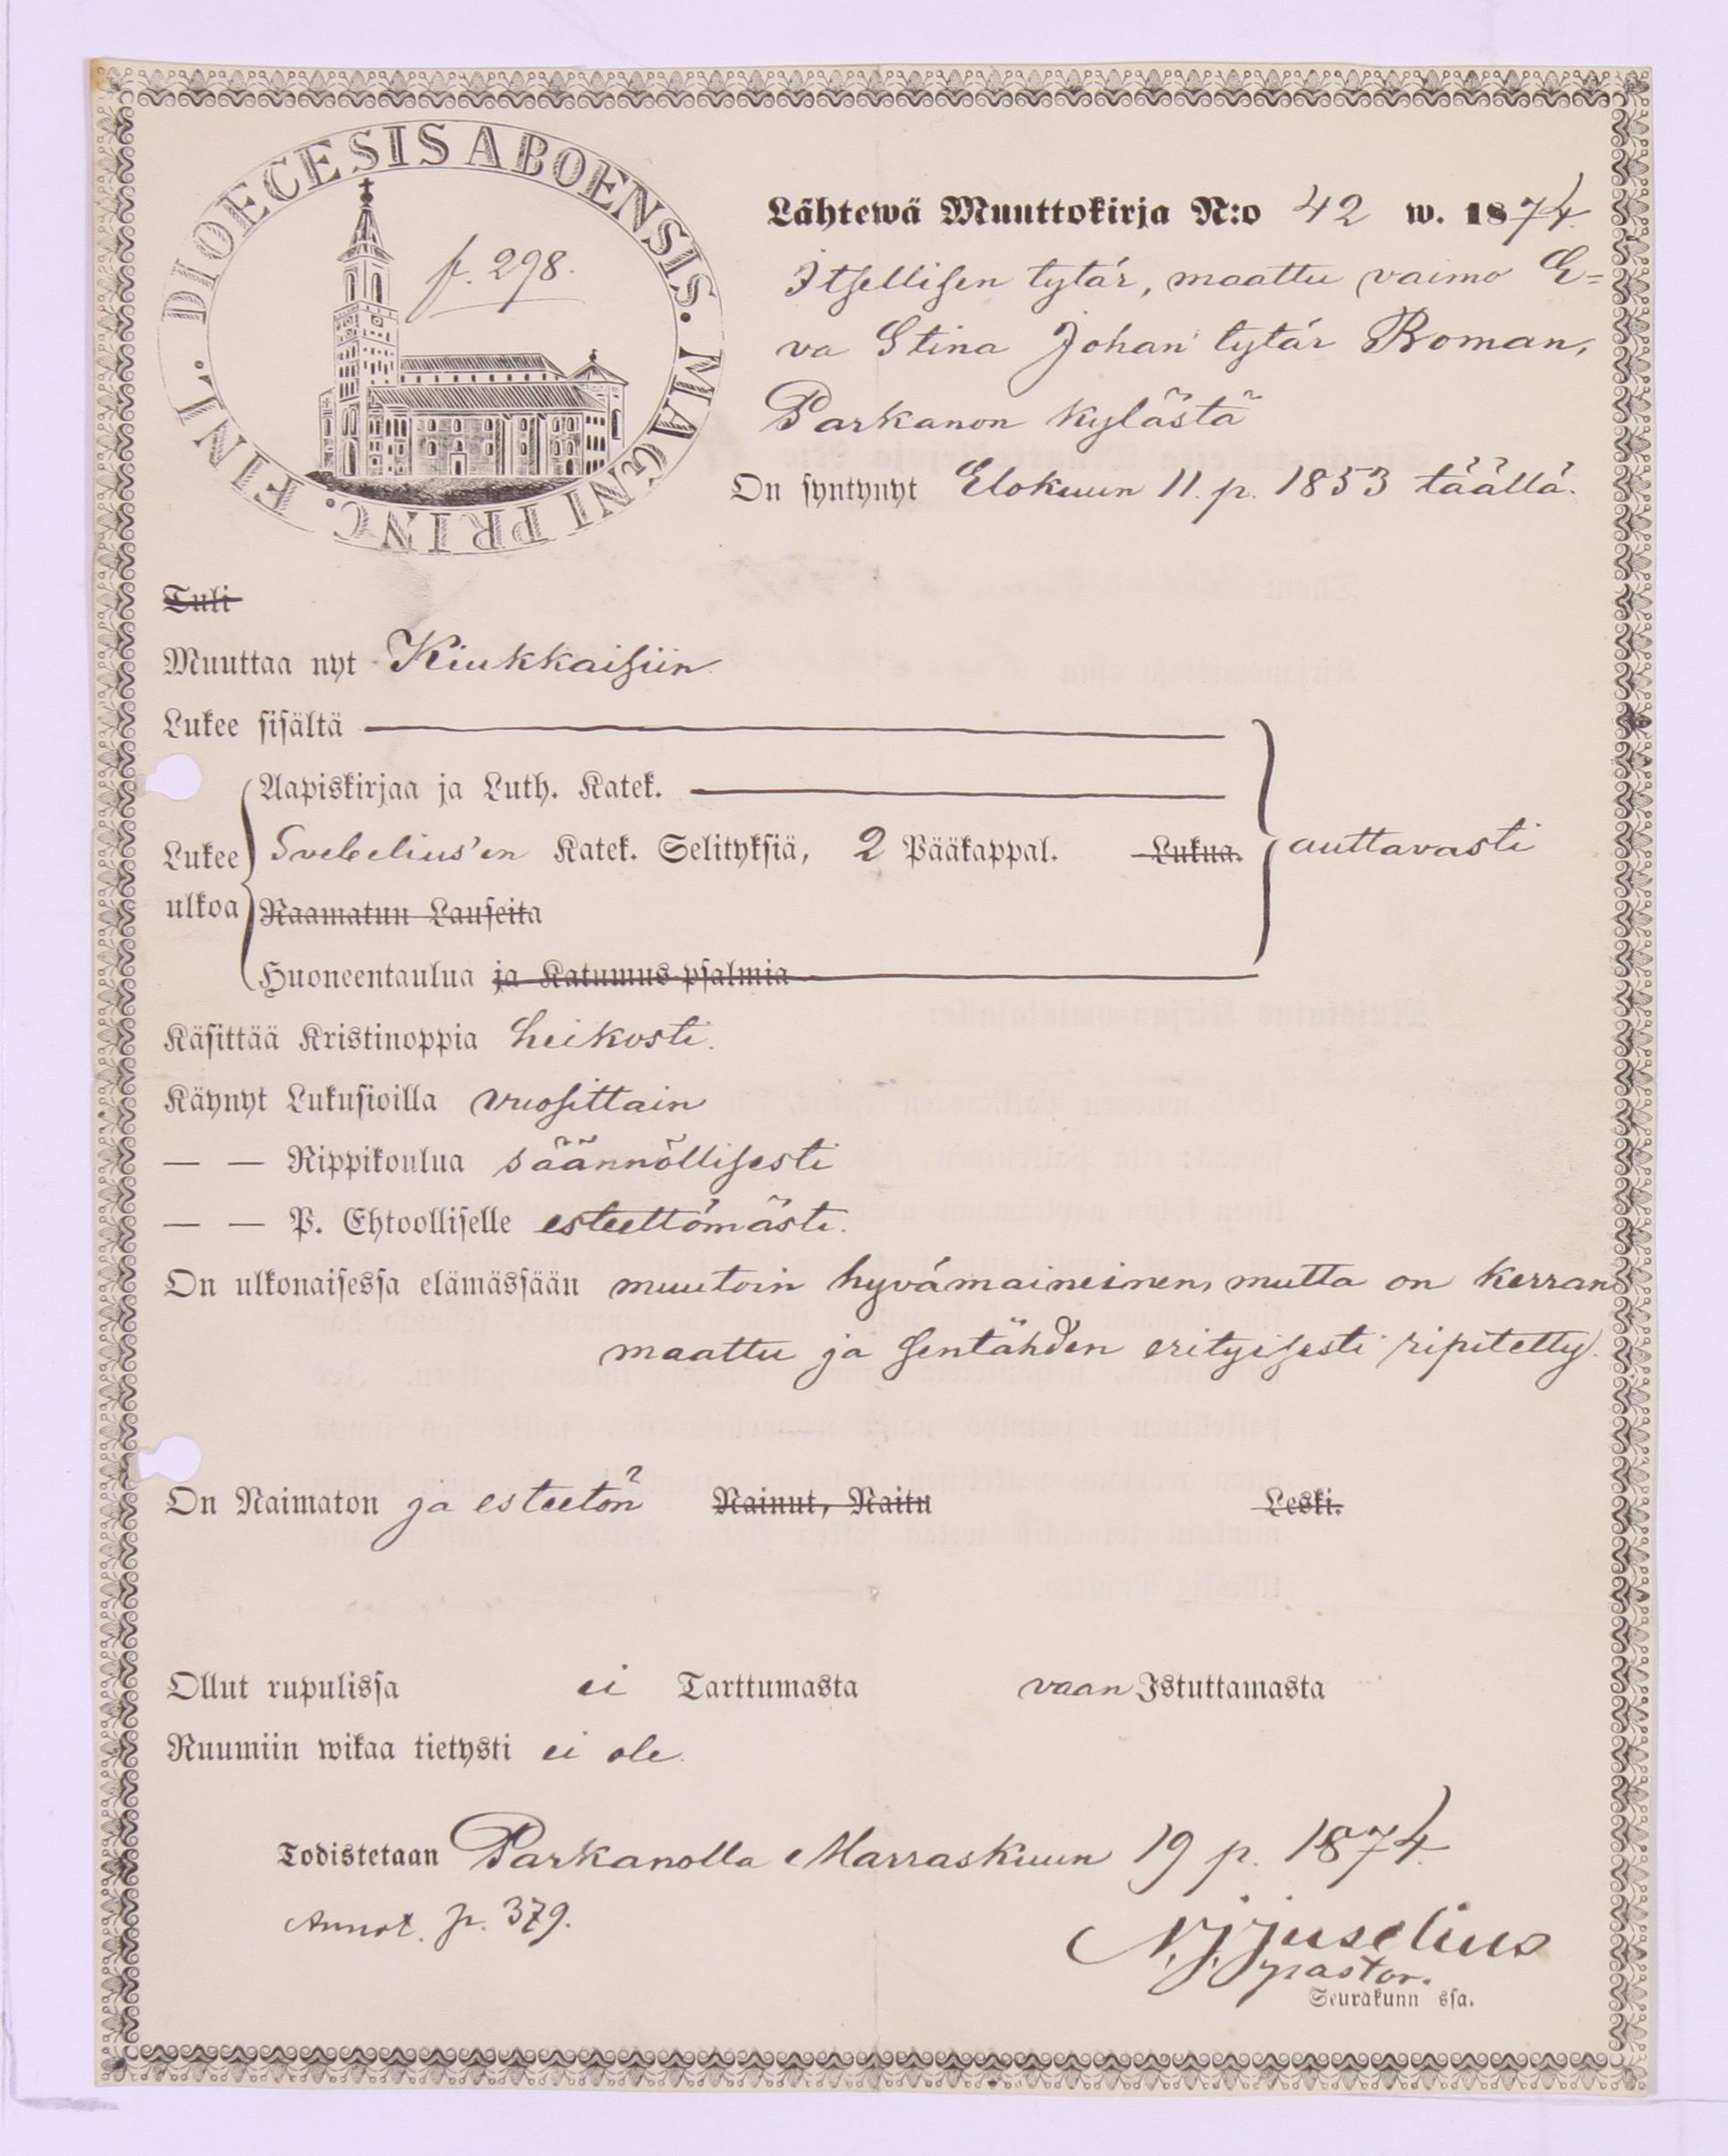 DIOECESIS ABOENSIS. MAGNI PRINC. FINL.
p. 298.
Lähtewä Muuttokirja N:o 42 w. 1874.
Itsellisen tytär, maattu vaimo E=
va Stina Johan tytär Roman,
Parkanon kylästä
On syntynyt Elokuun 11. p. 1853 täällä.
Tuli
Muuttaa nyt Kiukkaisiin.
Lukee sisältä
Aapiskirjaa ja Luth. Katek.
Lukee ulkoa Svebelius'en Katek. Selityksiä, 2 Pääkappal. Lukua. auttavasti
Raamatun Lauseita
Huoneentaulua ja Katumus-psalmia
Käsittää Kristinoppia heikosti.
Käynyt Lukusioilla vuosittain
— — Rippikoulua säännöllisesti
— — P. Ehtoolliselle esteettömästi.
On ulkonaisessa elämässään muutoin hyvämaineinen, mutta on kerran
maattu ja sentähden erityisesti ripitetty.
On Naimaton ja esteetön Nainut, Naitu Leski.
Ollut rupulissa ei Tarttumasta vaan Istuttamasta
Ruumiin wikaa tietysti ei ole.
Todistetaan Parkanolla Marraskuun 19 p. 1874.
Annot. p. 379.
N. J. Juselius
pastor.
Seurakunn ssa.